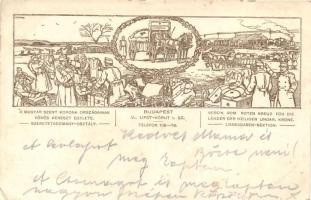 A MAGYAR SZENT KORONA ORSZÁGAINAK
VÖRÖS KERESZT EGYLETE.
SZERETETADOMÁNY-OSZTÁLY.
BUDAPEST
V., LIPÓT-KÖRÚT 1. SZ.
TELEFON
VEREIN VOM ROTEN KREUZ FÜR DIE
LÄNDER DER HEILIGEN UNGAR. KRONE.
LIEBESGABEN-SEKTION.
Kedves Mama és
A levlapot Börcse neni!
meg kaptam
A csomagot is megkaptam
nagyon szépen köszönöm